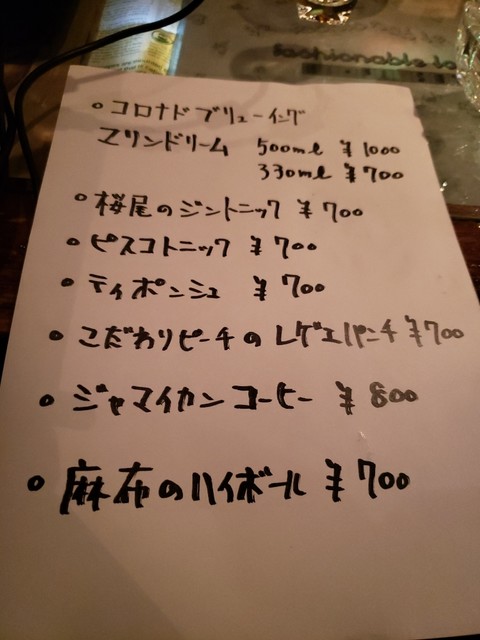 fashionable
○ コロナド ブリューイング
マリンドリーム 500ml ¥1000
330ml ¥700
○ 桜尾のジントニック ¥700
○ ピスコトニック ¥700
○ ティポンシュ ¥700
○ こだわりピーチのレゲエパンチ ¥700
○ ジャマイカンコーヒー ¥800
○ 麻布のハイボール ¥700